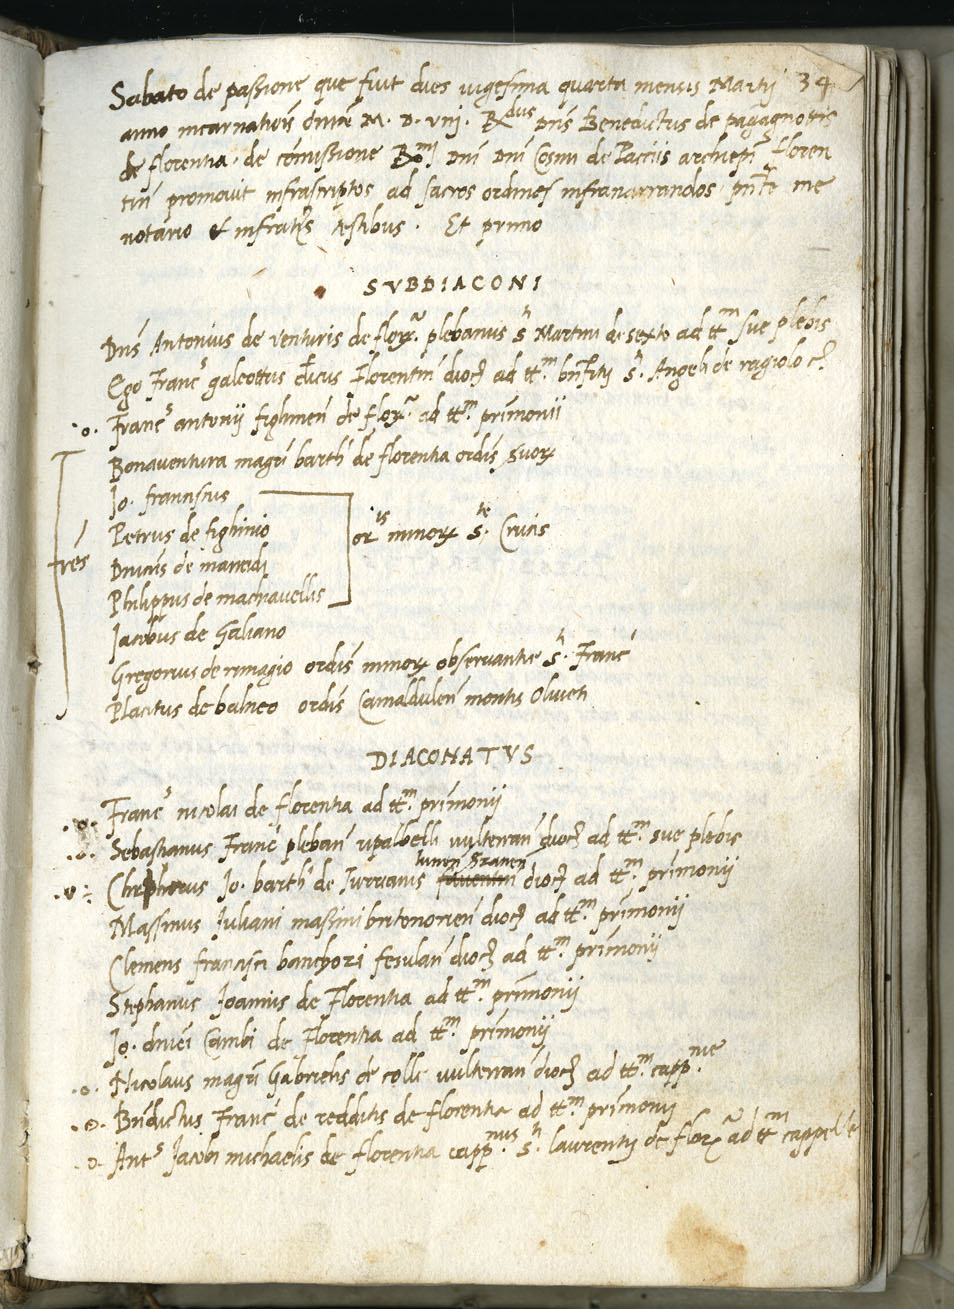 34
Sabato de passione que fuit dies vigesima quarta mensis Martij
anno incarnatiõis dñice M. D. viij. R.dus Dñs Benedictus de pagagnottis
de florentia. de cõmissione R.mi Dñi Dñi Cosmi de Pacciis archiepĩ floren
tiñ promovit infrascriptos ad sacros ordines infranarrandos pñte me
notario & infratis testibus. Et primo
SVBDIACONI
Dñs Antonius de venturis de flor.a plebanus s.ti Martini de sexto ad tt.m sue plebis
Ego Franc.s galeottus cl̃icus Florentiñ dioc. ad tt.m bñfitij s.ti Angeli de ragiolo
.o. Franc.s antonij fighineñ de flor.a ad tt.m prĩmonii
Bonaventura magrĩ barth. de florentia ordis suor
Jo. franciscus
Petrus de fighino
Dnicus de
Philippus de machiavellis
or.is minor s.te Crucis
frẽs
Jacobus de Galiano
Gregorius de romagio ordis minor observantie s.ti Franc.
Placitus de balneo ordis Camalduleñ montis Oliveti
DIACONATVS
.o. Franc.s nicolai de florentia ad tt.m prĩmonij
.o. Sebastianus Franc. plebañ ripalbelli vulterrañ dioc. ad tt.m sue plebis
luneñ Szaneñ
Chrephorus Jo. barth. de dioc. ad tt.m prĩmonij
Massimus Juliani massini britenorieñ dioc. ad tt.m prĩmonij
Clemens francisci banchozi fesulañ dioc. ad tt.m prĩmonij
Stephanus Joannis de Florentia ad tt.m prĩmonij
Jo. dnici Cambi de Florentia ad tt.m prĩmonij
.o. Nicolaus magrĩ Gabrielis de colle vulterrañ dioc. ad tt.m capp.nie
.o. Bñdictus Franc. de redditis de florentia ad tt.m prĩmonij
.o. Ant.s Jacobi michaelis de florentia capp.nus s.ti laurentij de flor.a ad tt.m cappelle